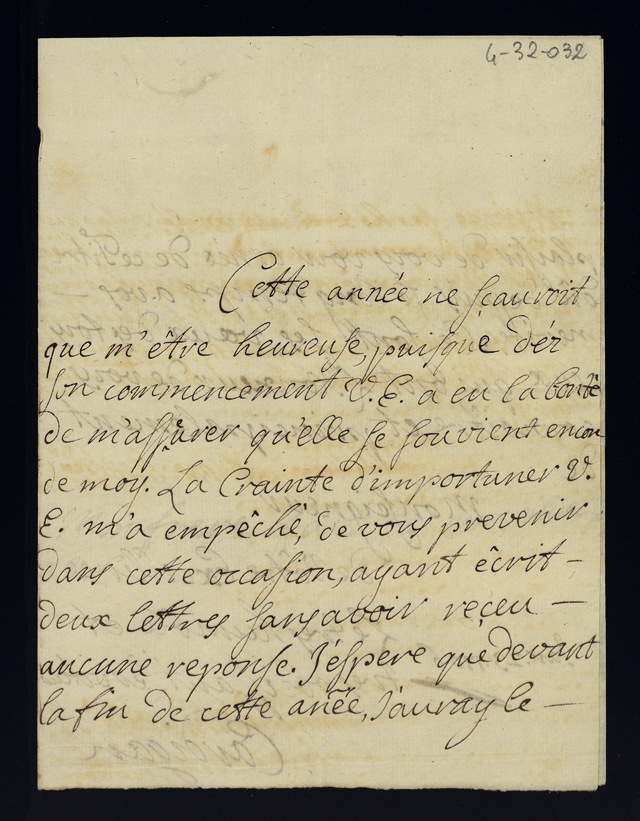 4-32-032
Cette année ne scauroit
que m'être heureuse, puisque déz
son commencement V. E. a eu la bonté
de m'assurer qu'elle se souvient encore
de moy. La Crainte d'importuner V.
E. m'a empêché, de vous prevenir
dans cette occasion, ayant êcrit –
deux lettres sans avoir receu —
aucune reponse. J'éspere que devant
la fin de cette année, j'auray le —